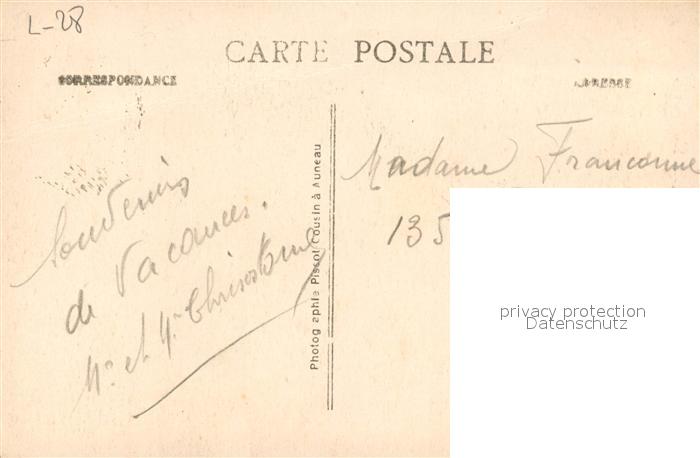 L-28
CARTE POSTALE
CORRESPONDANCE
ADRESSE
Souvenirs
de Vacances.
Mr et Mme
Photographie Pissot Cousin à Auneau
Madame Franconne
135
privacy protection
Datenschutz